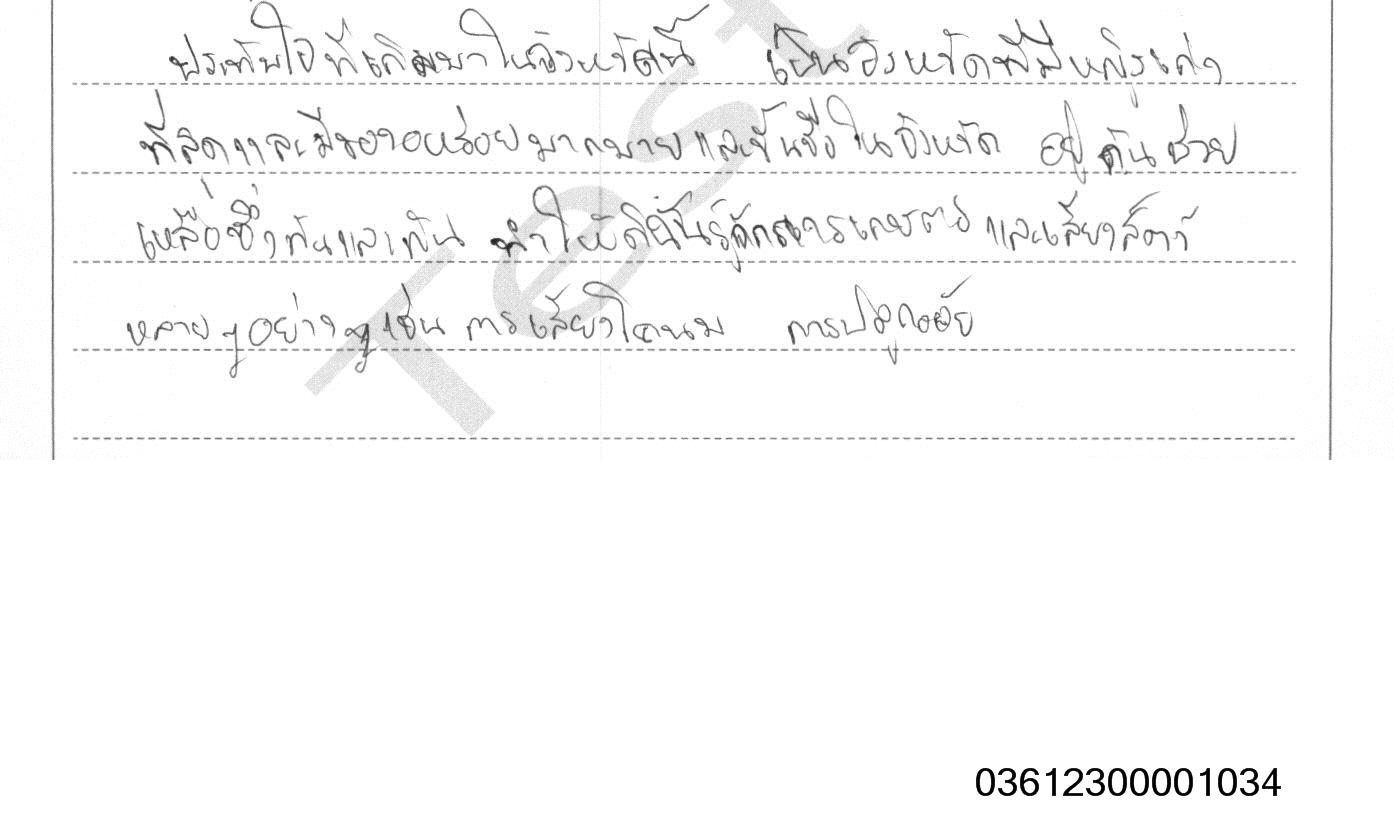 ประทับใจที่เกิดมาในจังหวัดนี้ เป็นจังหวัดที่มีหญิงเก่ง
ที่สุดและมีของอร่อยมากมายและขึ้นชื่อในจังหวัด อยู่กันช่วย
เหลือซึ่งกันและกัน ทำให้ดิฉันรู้จักการเกษตร และเลี้ยงสัตว์
หลายๆอย่างๆเช่น การเลี้ยงโคนม การปลูกอ้อย
Test
03612300001034